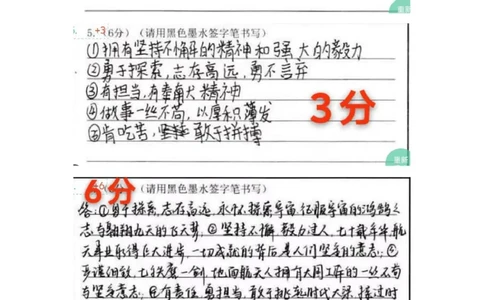 5.+3(6分) (请用黑色墨水签字笔书写)
①拥有坚持不懈的精神和强大的毅力
②勇于探索,志存高远,勇不言弃
③有担当,有奉献精神
④做事一丝不苟,以厚积薄发
⑤肯吃苦,敢于拼搏
3分
6分
(请用黑色墨水签字笔书写)
答:①勇于探索,志存高远,永怀探索宇宙、征服宇宙的鸿鹄之
志与翱翔九天的飞天梦。②坚持不懈,毅力惊人,七十载年年航
天事业取得巨大进步,一切成就的背后是人们坚定的意志。④
七铁磨一剑,他而航天人拥有大国工匠的一丝不苟
与坚定意志。有责任,勇担当,敢于挑起时代大梁,接过时